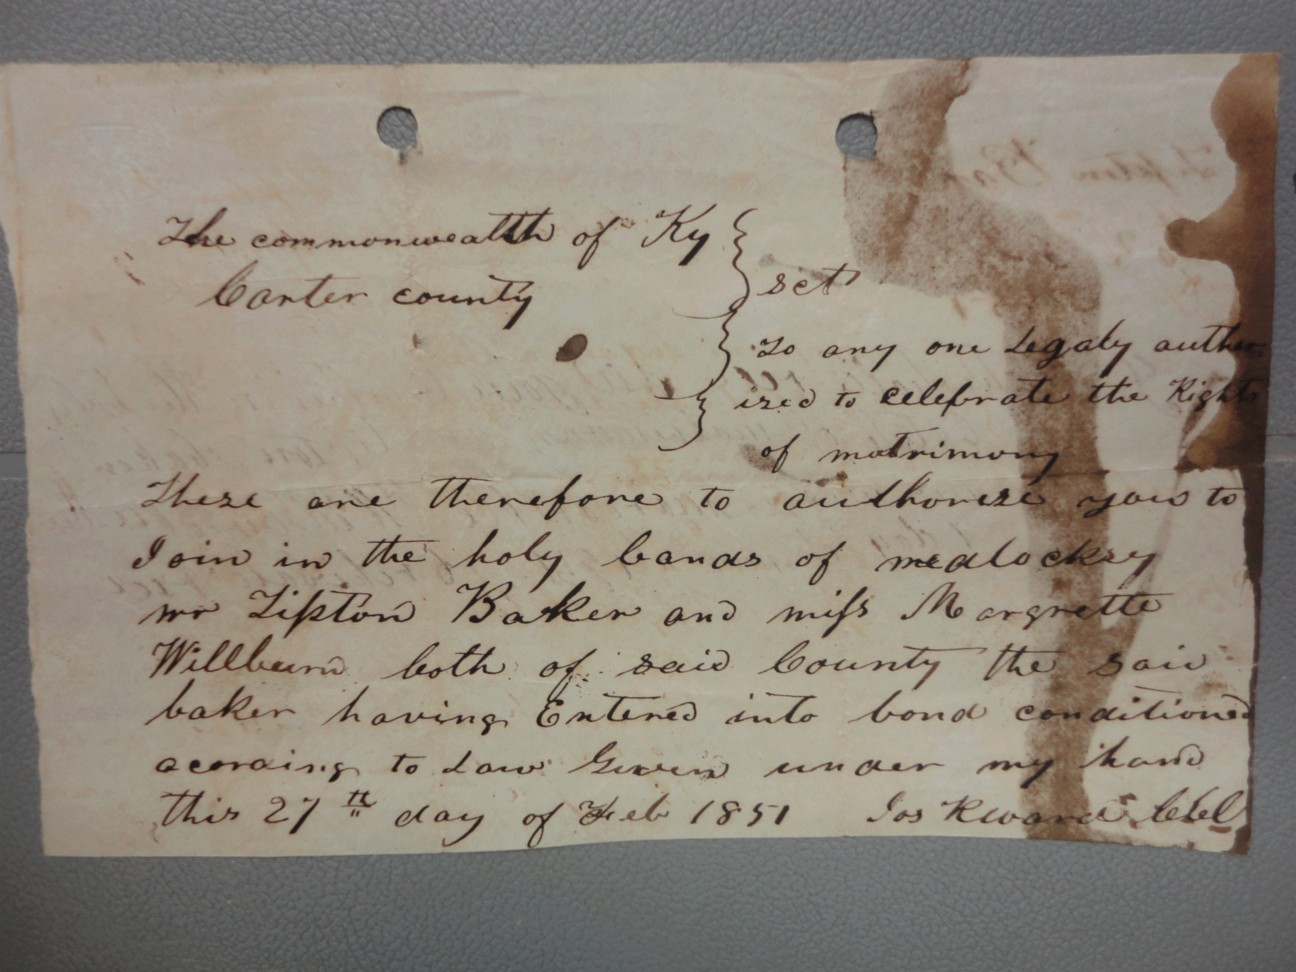 The commonwealth of Ky
Carter county
sct
To any one Legaly author
ized to celebrate the Rights
of matrimony
These are therefore to authorize you to
Join in the holy bands of medlockey
mr Tipton Baker and miss Margrette
Willburn both of said County the said
baker having Entered into bond conditioned
acording to Law Given under my hand
this 27th day of Feb 1851 Jos R Ward